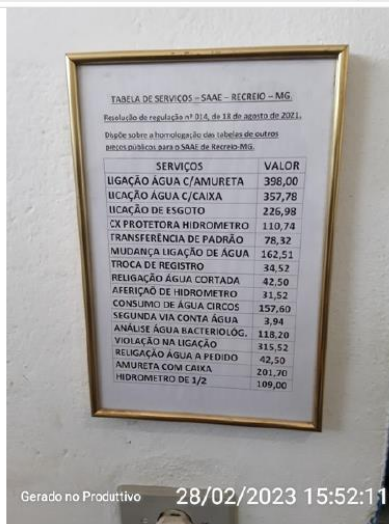 TABELA DE SERVIÇOS – SAAE – RECREIO – MG.
Resolução de regulação nº 014, de 18 de agosto de 2021.
Dispõe sobre a homologação das tabelas de outros
preços públicos para o SAAE de Recreio-MG.
SERVIÇOS VALOR
LIGAÇÃO ÁGUA C/AMURETA 398,00
LICAÇÃO ÁGUA C/CAIXA 357,78
LICAÇÃO DE ESGOTO 226,98
CX PROTETORA HIDROMETRO 110,74
TRANSFERÊNCIA DE PADRÃO 78,32
MUDANÇA LIGAÇÃO DE ÁGUA 162,51
TROCA DE REGISTRO 34,52
RELIGAÇÃO ÁGUA CORTADA 42,50
AFERIÇAÕ DE HIDROMETRO 31,52
CONSUMO DE ÁGUA CIRCOS 157,60
SEGUNDA VIA CONTA ÁGUA 3,94
ANÁLISE ÁGUA BACTERIOLÓG. 118,20
VIOLAÇÃO NA LIGAÇÃO 315,52
RELIGAÇÃO ÁGUA A PEDIDO 42,50
AMURETA COM CAIXA 201,70
HIDROMETRO DE 1/2 109,00
Gerado no Produttivo 28/02/2023 15:52:11